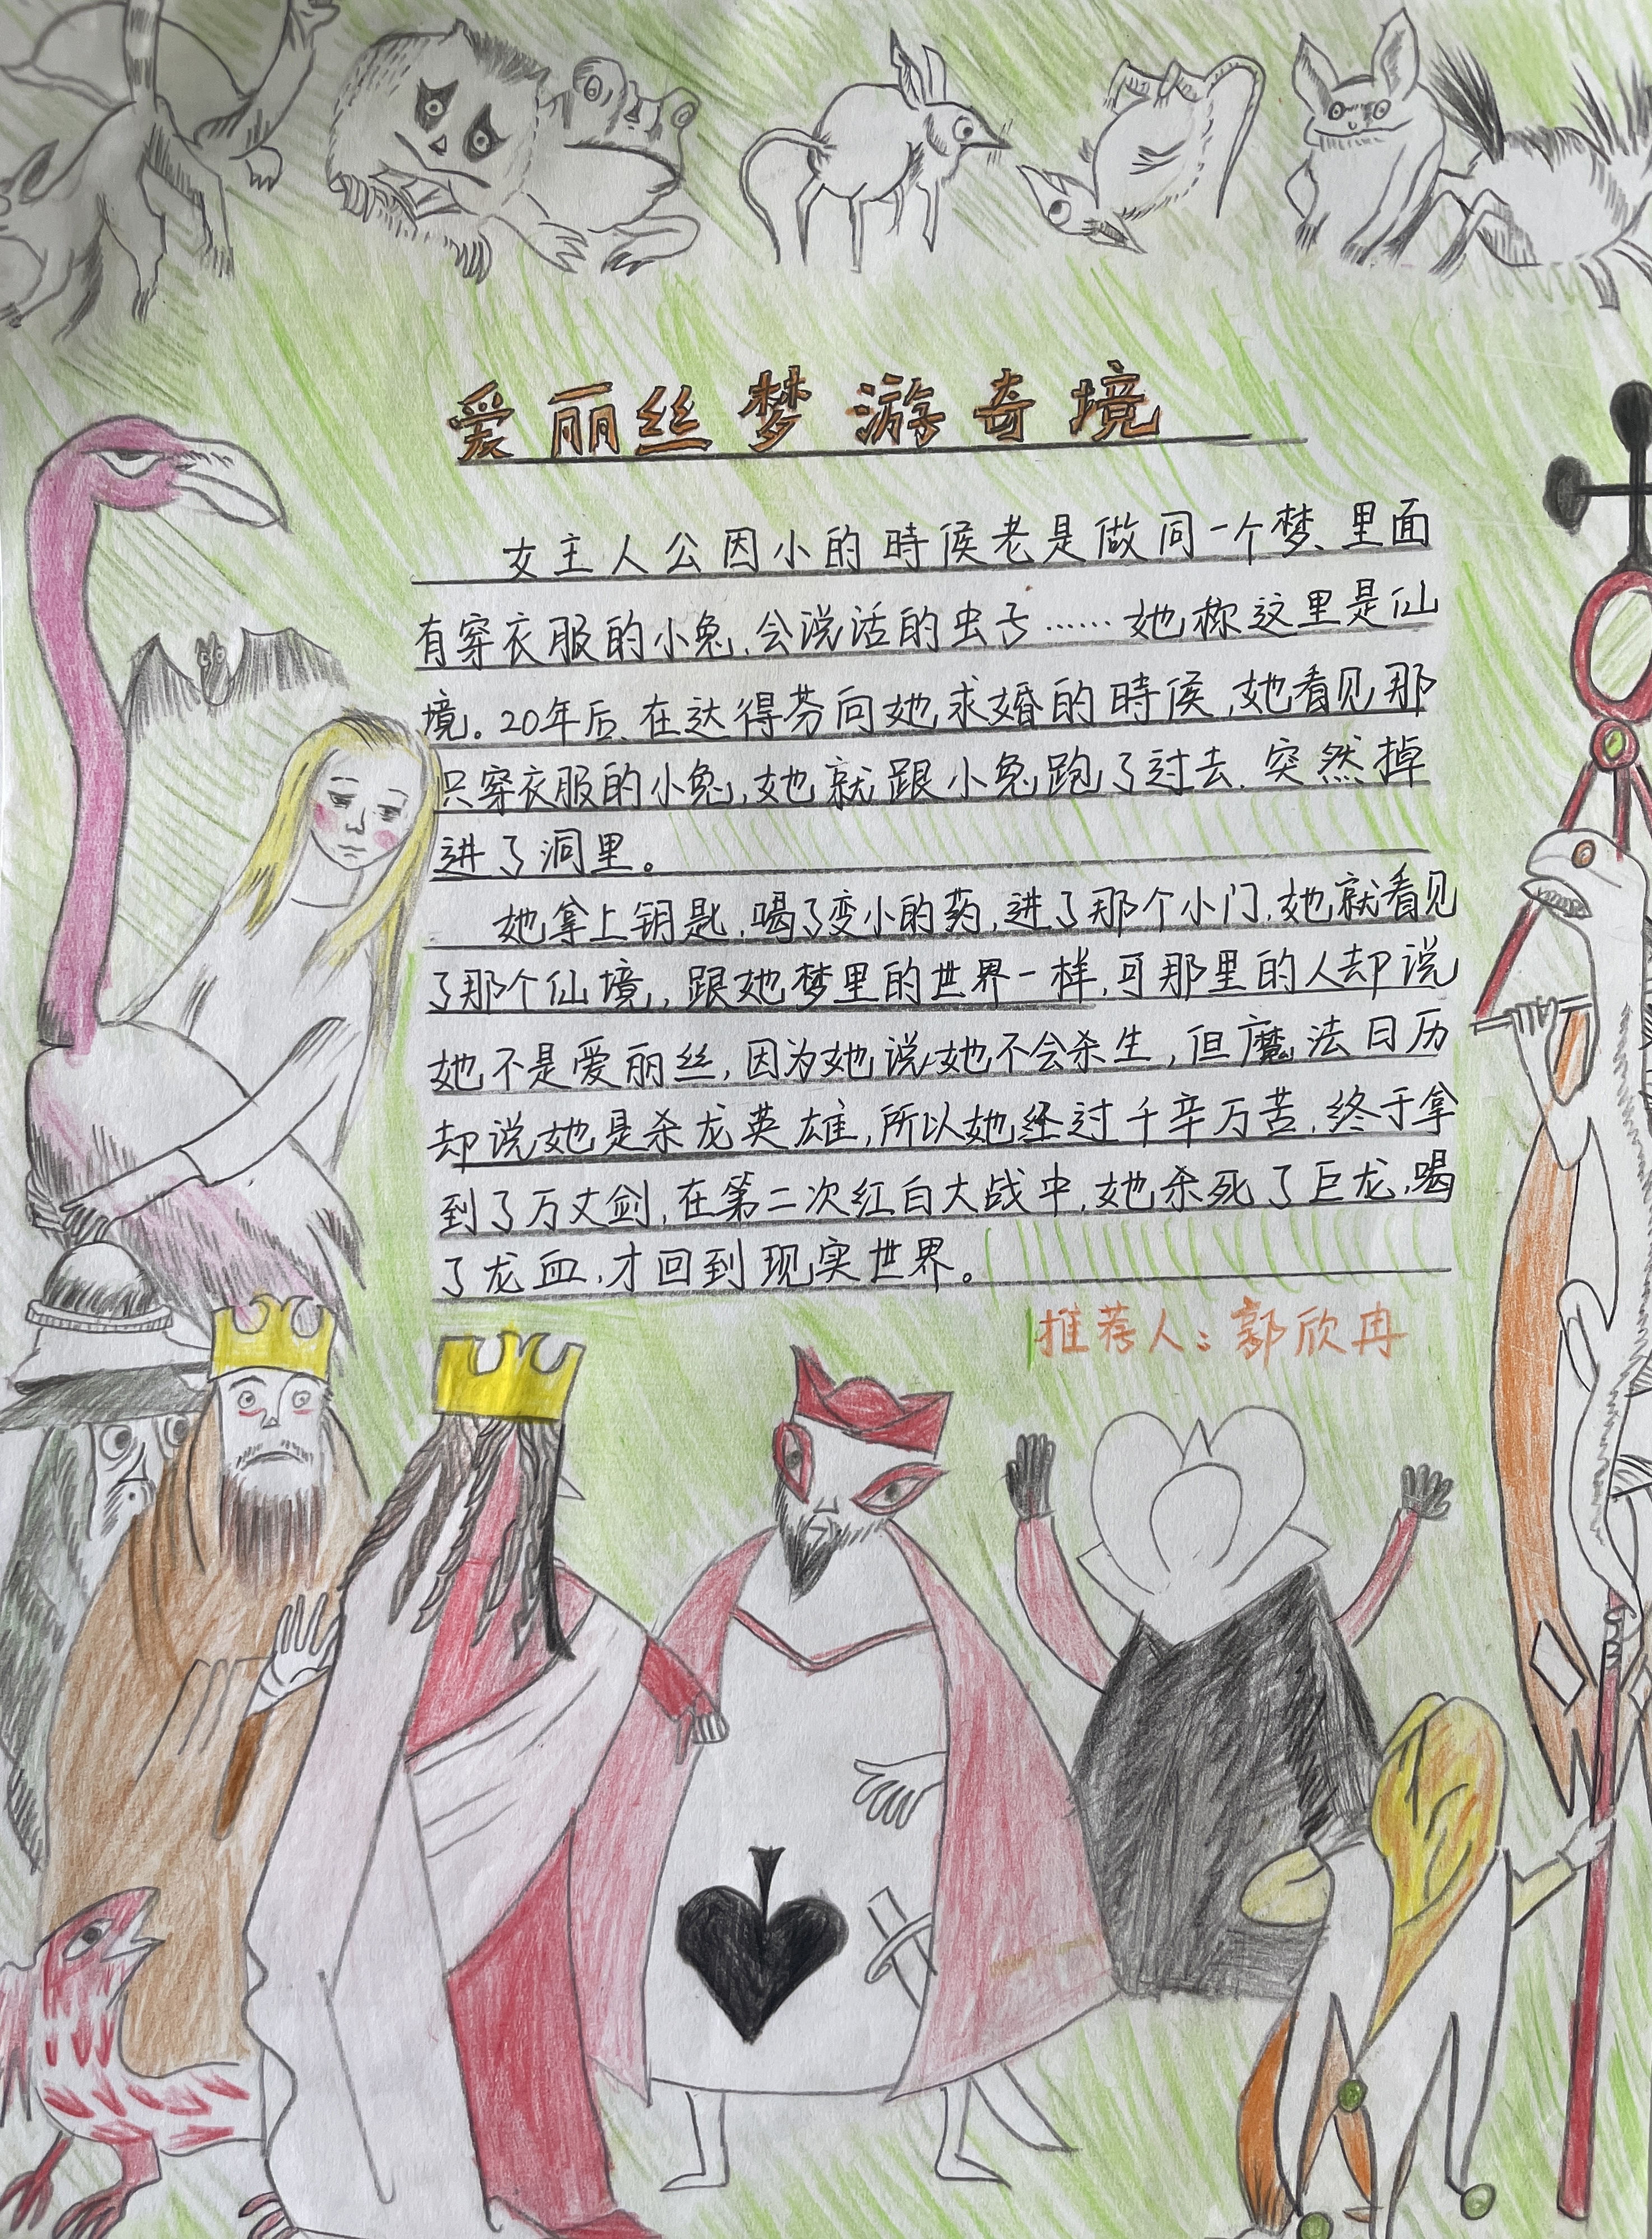 爱丽丝梦游奇境
女主人公因小的時候老是做同一个梦、里面
有穿衣服的小兔,会说话的虫子……她称这里是仙
境。20年后、在达得芬向她求婚的時候,她看见那
只穿衣服的小兔,她就跟小兔跑了过去.突然掉
进了洞里。
她拿上钥匙,喝了变小的药,进了那个小门,她就看见
了那个仙境,跟她梦里的世界一样,可那里的人却说
她不是爱丽丝,因为她说她不会杀生,但魔法日历
却说她是杀龙英雄,所以她经过千辛万苦,终于拿
到了万丈剑,在第二次红白大战中,她杀死了巨龙,喝
了龙血,才回到现实世界。
推荐人:郭欣冉